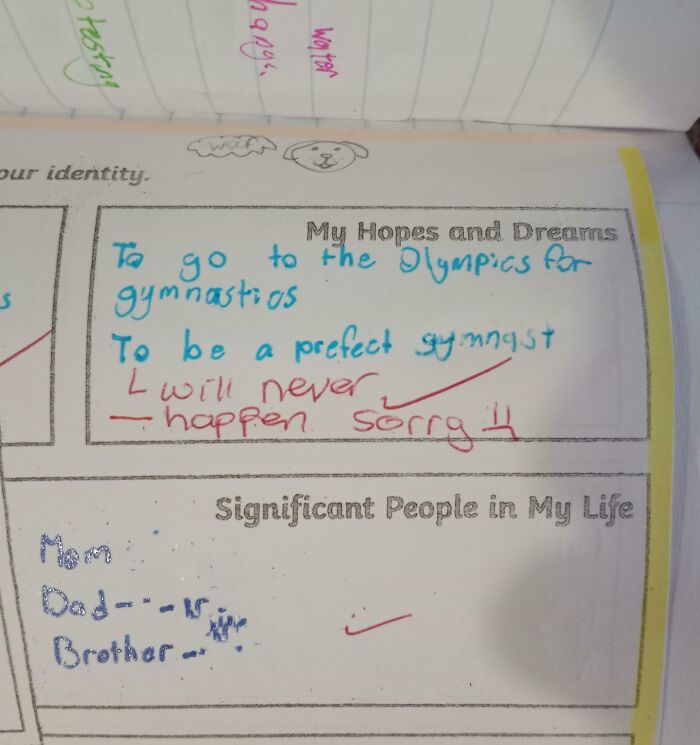 water
hang
testing
woof
our identity.
My Hopes and Dreams
To go to the Olympics for
gymnastics
To be a prefect gymnast
will never
happen sorry !!
s
Significant People in My Life
Mom
Dad
Brother